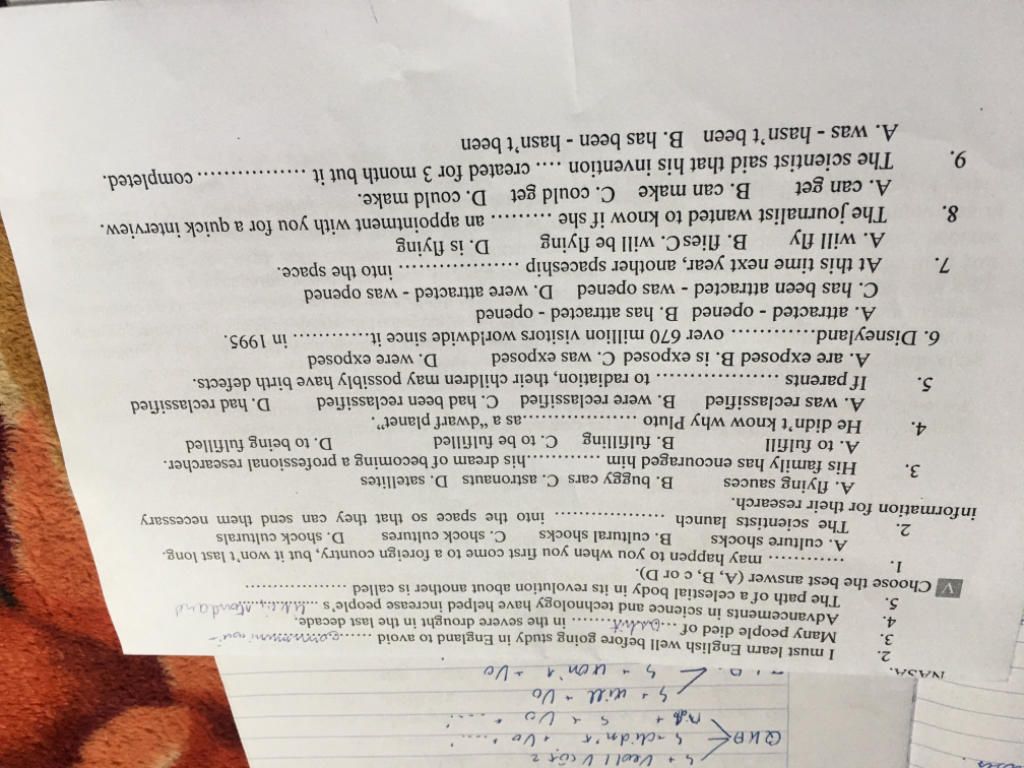 S + Ved / V cột 2
QKĐ S + didn't + Vo + .....
+ S + Vo + .....?
S + will + Vo
S + won't + Vo
NASA.
2. I must learn English well before going study in England to avoid ......
3. Many people died of ............ in the severe drought in the last decade.
4. Advancements in science and technology have helped increase people's ......
5. The path of a celestial body in its revolution about another is called ..................
V Choose the best answer (A, B, c or D).
1. ............ may happen to you when you first come to a foreign country, but it won't last long.
A. culture shocks B. cultural shocks C. shock cultures D. shock culturals
2. The scientists launch .................. into the space so that they can send them necessary
information for their research.
A. flying sauces B. buggy cars C. astronauts D. satellites
3. His family has encouraged him ............his dream of becoming a professional researcher.
A. to fulfill B. fulfilling C. to be fulfilled D. to being fulfilled
4. He didn't know why Pluto ..................as a “dwarf planet”.
A. was reclassified B. were reclassified C. had been reclassified D. had reclassified
5. If parents .................. to radiation, their children may possibly have birth defects.
A. are exposed B. is exposed C. was exposed D. were exposed
6. Disneyland............ over 670 million visitors worldwide since it............ in 1995.
A. attracted - opened B. has attracted - opened
C. has been attracted - was opened D. were attracted - was opened
7. At this time next year, another spaceship .................. into the space.
A. will fly B. flies C. will be flying D. is flying
8. The journalist wanted to know if she ......... an appointment with you for a quick interview.
A. can get B. can make C. could get D. could make.
9. The scientist said that his invention .... created for 3 month but it ................ completed.
A. was - hasn't been B. has been - hasn't been